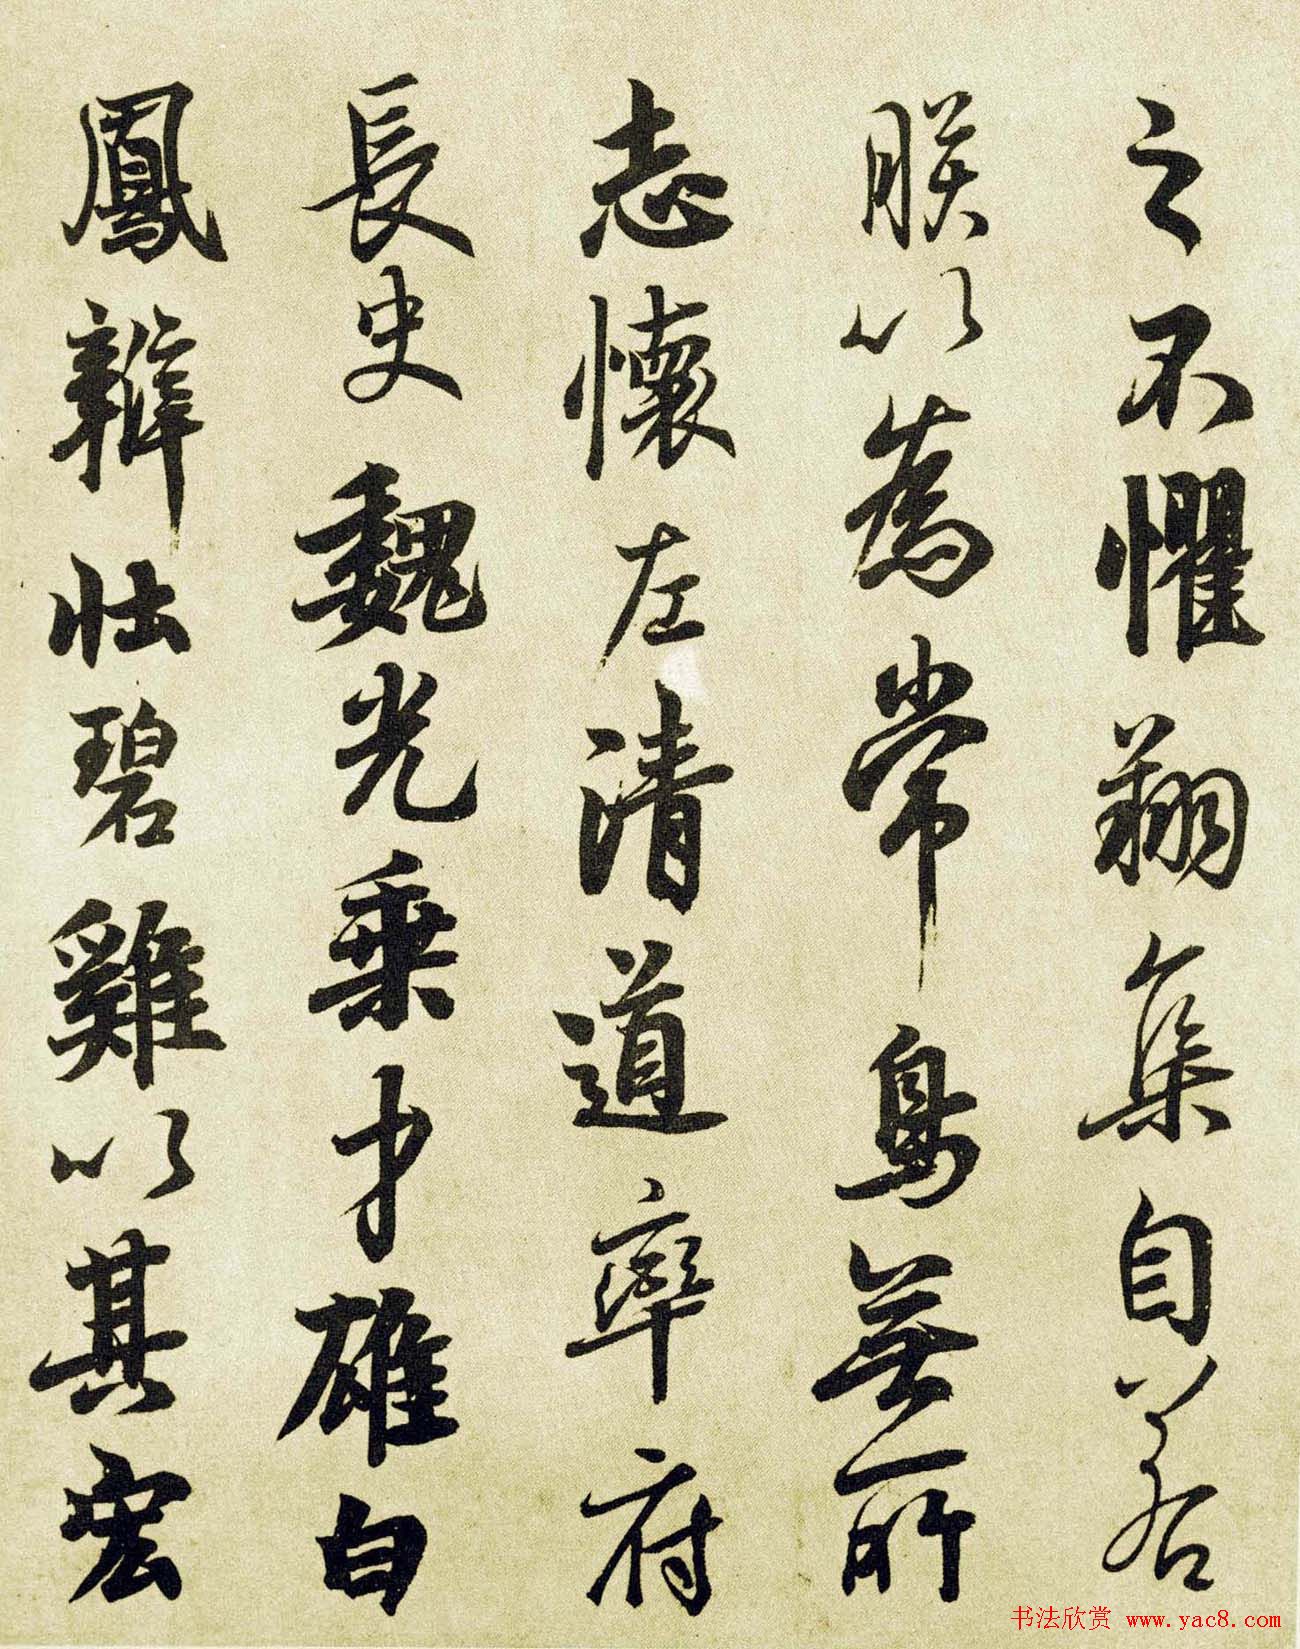 之不懼翔集自若
朕以為常鳥無所
志懷左清道率府
長史魏光乘才雄白
鳳辯壯碧雞以其宏
书法欣赏 www.yac8.com